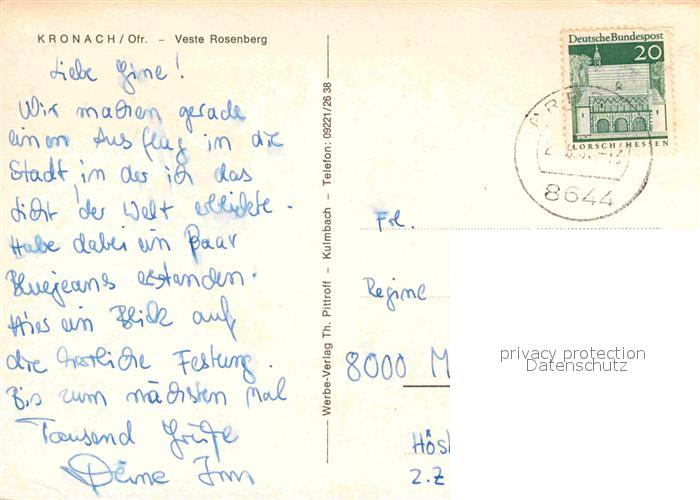 KRONACH/Ofr. - Veste Rosenberg
Liebe Gine!
Wir machen gerade
einen Ausflug in die
Stadt, in der ich das
Licht der Welt erblickte.
Habe dabei ein Paar
Bluejeans erstanden.
Hier ein Blick auf
die herrliche Festung.
Bis zum nächsten Mal
Tausend Grüße
Deine
Werbe-Verlag Th. Pittroff - Kulmbach - Telefon: 09221/26 38
Deutsche Bundespost
20
LORSCH/HESSEN
8644
Frl.
Regine
8000 M
Hösl
z.Z
privacy protection
Datenschutz